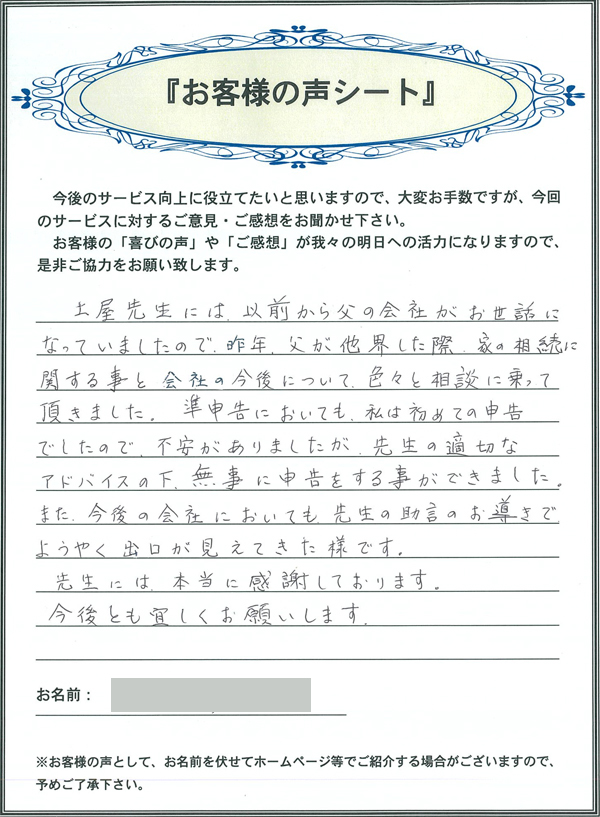 『お客様の声シート』
今後のサービス向上に役立てたいと思いますので、大変お手数ですが、今回
のサービスに対するご意見・ご感想をお聞かせ下さい。
お客様の「喜びの声」や「ご感想」が我々の明日への活力になりますので、
是非ご協力をお願い致します。
土屋先生には、以前から父の会社がお世話に
なっていましたので、昨年、父が他界した際、家の相続に
関する事と会社の今後について、色々と相談に乗って
頂きました。準申告においても、私は初めての申告
でしたので、不安がありましたが、先生の適切な
アドバイスの下、無事に申告をする事ができました。
また、今後の会社においても先生の助言のお導きで
ようやく出口が見えてきた様です。
先生には、本当に感謝しております。
今後とも宜しくお願いします。
お名前：
※お客様の声として、お名前を伏せてホームページ等でご紹介する場合がございますので、
予めご了承下さい。